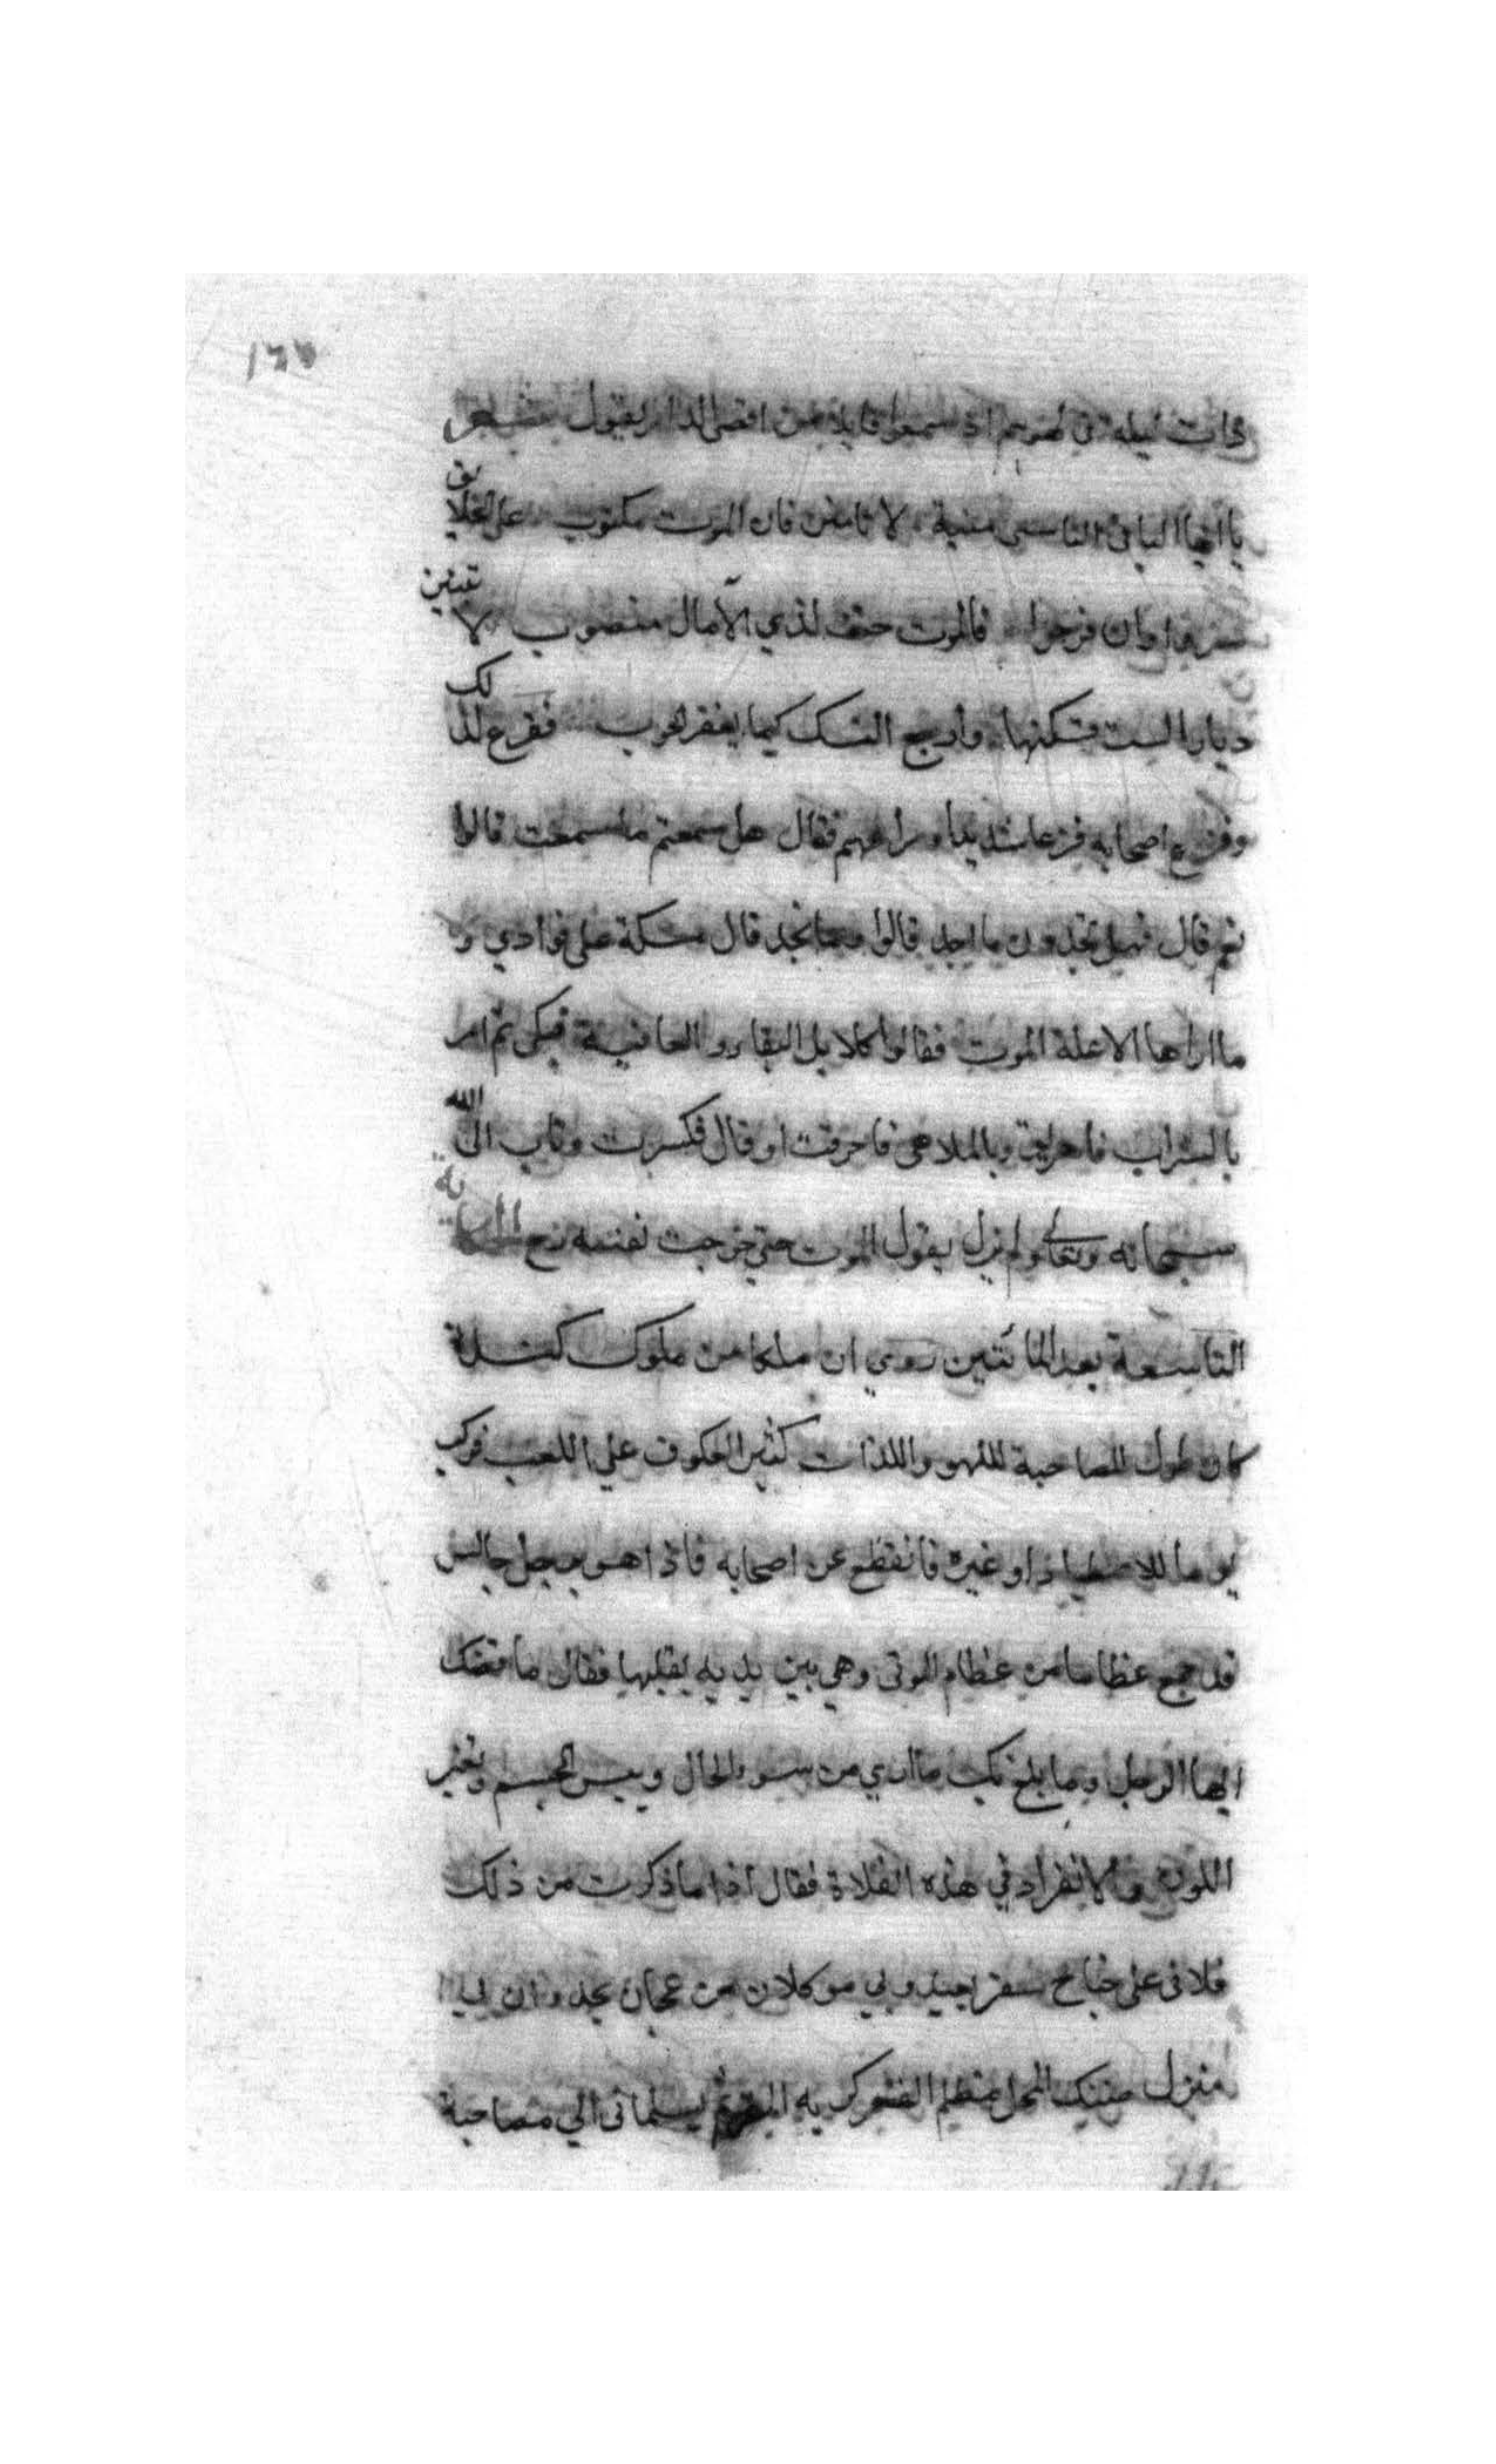 ١٦٧
ذات ليلة في لهوهم اذ سمعوا قايلا من اقصى الدار يقول شعر
يا ايها الباني الناسي منيته لا تامنن فان الموت مكتوب على الخلايق
ان فرحوا فالموت حتف لذي الآمال منصوب لا تبنين
ديارا لست تسكنها وارجع النسك كيما يغفر الحوب ففزع لذلك
وفزع اصحابه فزعا شديدا وراعهم فقال هل سمعتم ما سمعت قالوا
نعم قال فهل تجدون ما اجد قالوا وما تجد قال مسكة على فوادي و
ما اراها الا علة الموت فقالوا كلا بل البقا والعافية فبكى ثم امر
بالشراب فاهريق وبالملاهي فاحرقت او قال فكسرت وتاب الى الله
سبحانه وتعالى ولم يزل يقول الموت حتى خرجت نفسه رح الحكاية
التاسعة بعد المائتين روي ان ملكا من ملوك كندة
كان طول المصاحبة للهو واللذات كثير العكوف علي اللعب فركب
يوما للاصطياد او غيره فانقطع عن اصحابه فاذا هو برجل جالس
قد جمع عظاما من عظام الموتى وهي بين يديه يقلبها فقال ما قصتك
ايها الرجل وما بلغ بك ما اري من سوء الحال ويبس الجسم وتغير
اللون والانفراد في هذه الفلاة فقال اذا ما ذكرت من ذلك
فلاني على جناح سفر بعيد وبي موكلان مزعجان يحدوان بي الى
منزل ضنيك المحل مظلم القعر كريه المقر ثم يسلماني الي مصاحبة